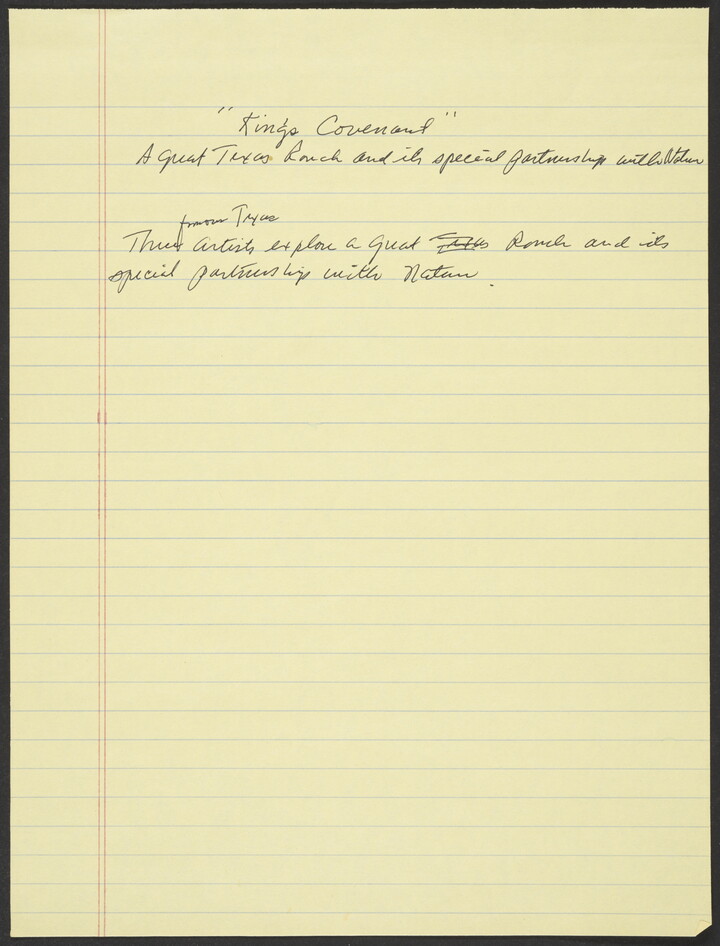 "King's Covenant"
A great Texas Ranch and its special partnership with Nature
famous Texas
Three artists explore a great Texas Ranch and its
special partnership with Nature.